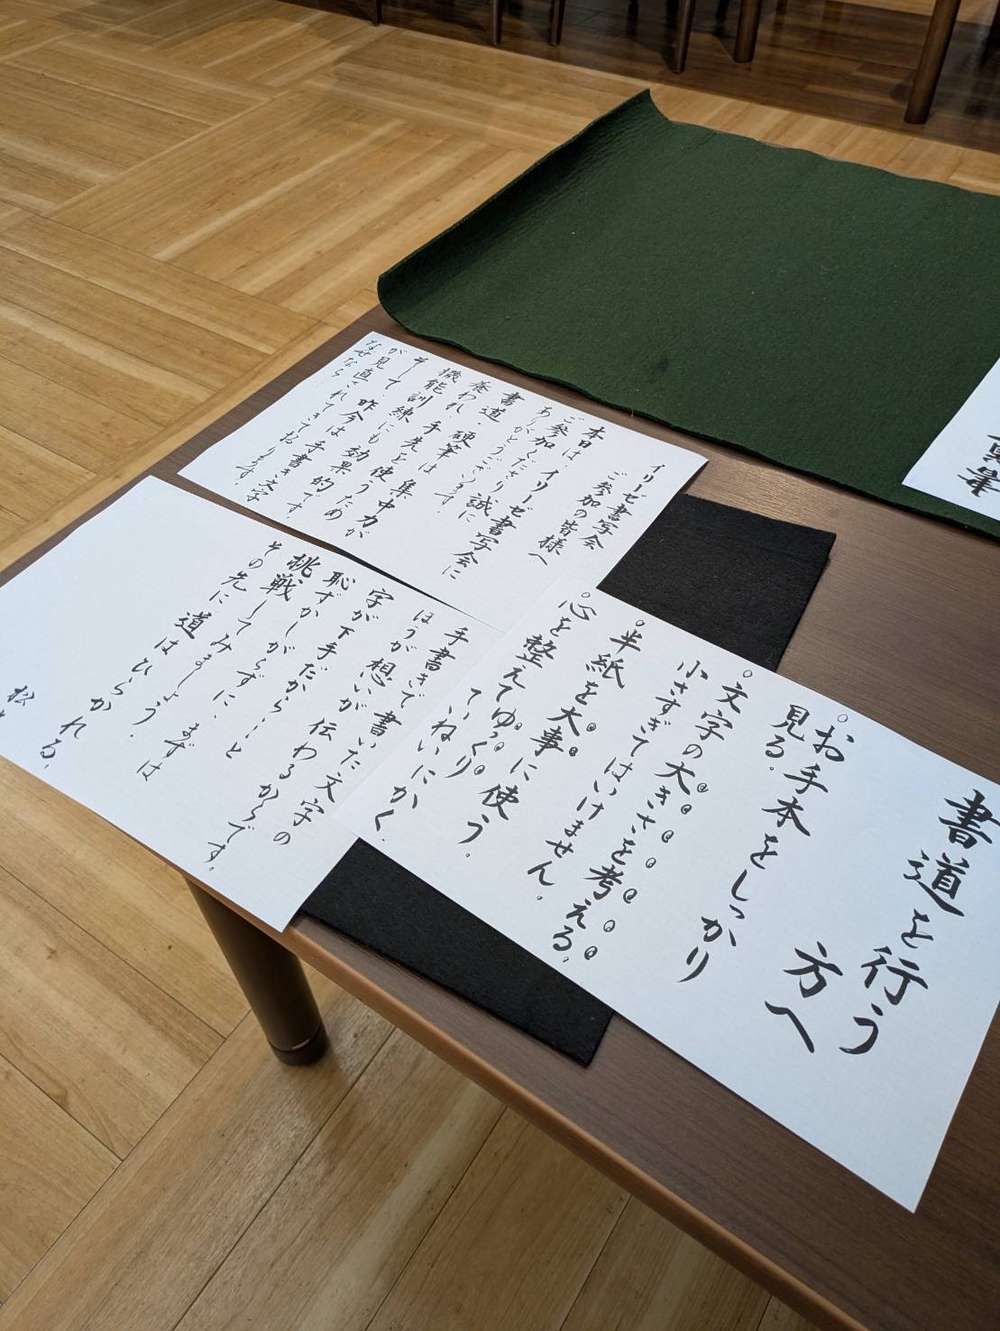 書道を行う
方へ
○お手本をしっかり
見る。
○文字の大きさを考える。
小さすぎてはいけません。
○半紙を大事に使う。
○心を整えてゆっくり
ていねいにかく。
イリーゼ書写会
ご参加の皆様へ
本日は、イリーゼ書写会に
ご参加くださり誠に
ありがとうございます。
書道、硬筆は
養われ、集中力が
機能訓練にも効果的です
そして、昨今は手書き文字
が見直されてきております。
なぜなら
手書きで書いた文字の
ほうが想いが伝わるからです。
字が下手だから・・と
恥ずかしがらずに、まずは
挑戦してみましょう。
その先に道はひらかれる。
松